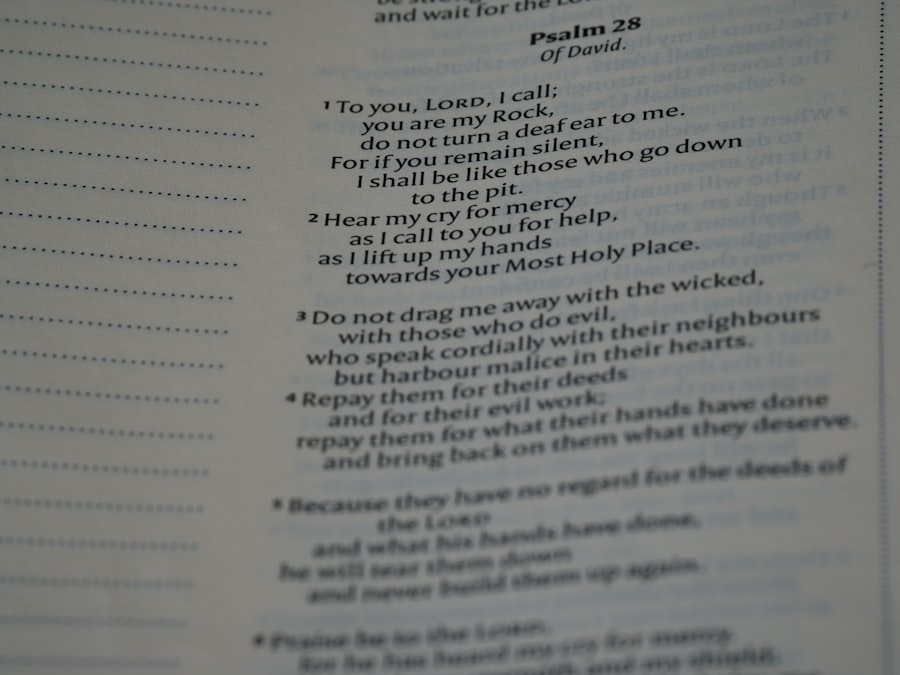 and wait for the
Psalm 28
Of David.
1 To you, LORD, I call;
you are my Rock,
do not turn a deaf ear to me.
For if you remain silent,
I shall be like those who go down
to the pit.
2 Hear my cry for mercy
as I call to you for help,
as I lift up my hands
towards your Most Holy Place.
3 Do not drag me away with the wicked,
with those who do evil,
who speak cordially with their neighbours
but harbour malice in their hearts.
4 Repay them for their deeds
and for their evil work;
repay them for what their hands have done
and bring back on them what they deserve.
5 Because they have no regard for the deeds of
the LORD
and what his hands have done,
he will tear them down
and never build them up again.
6 Praise be to the LORD,
for he has heard my cry for mercy.
and my shield;